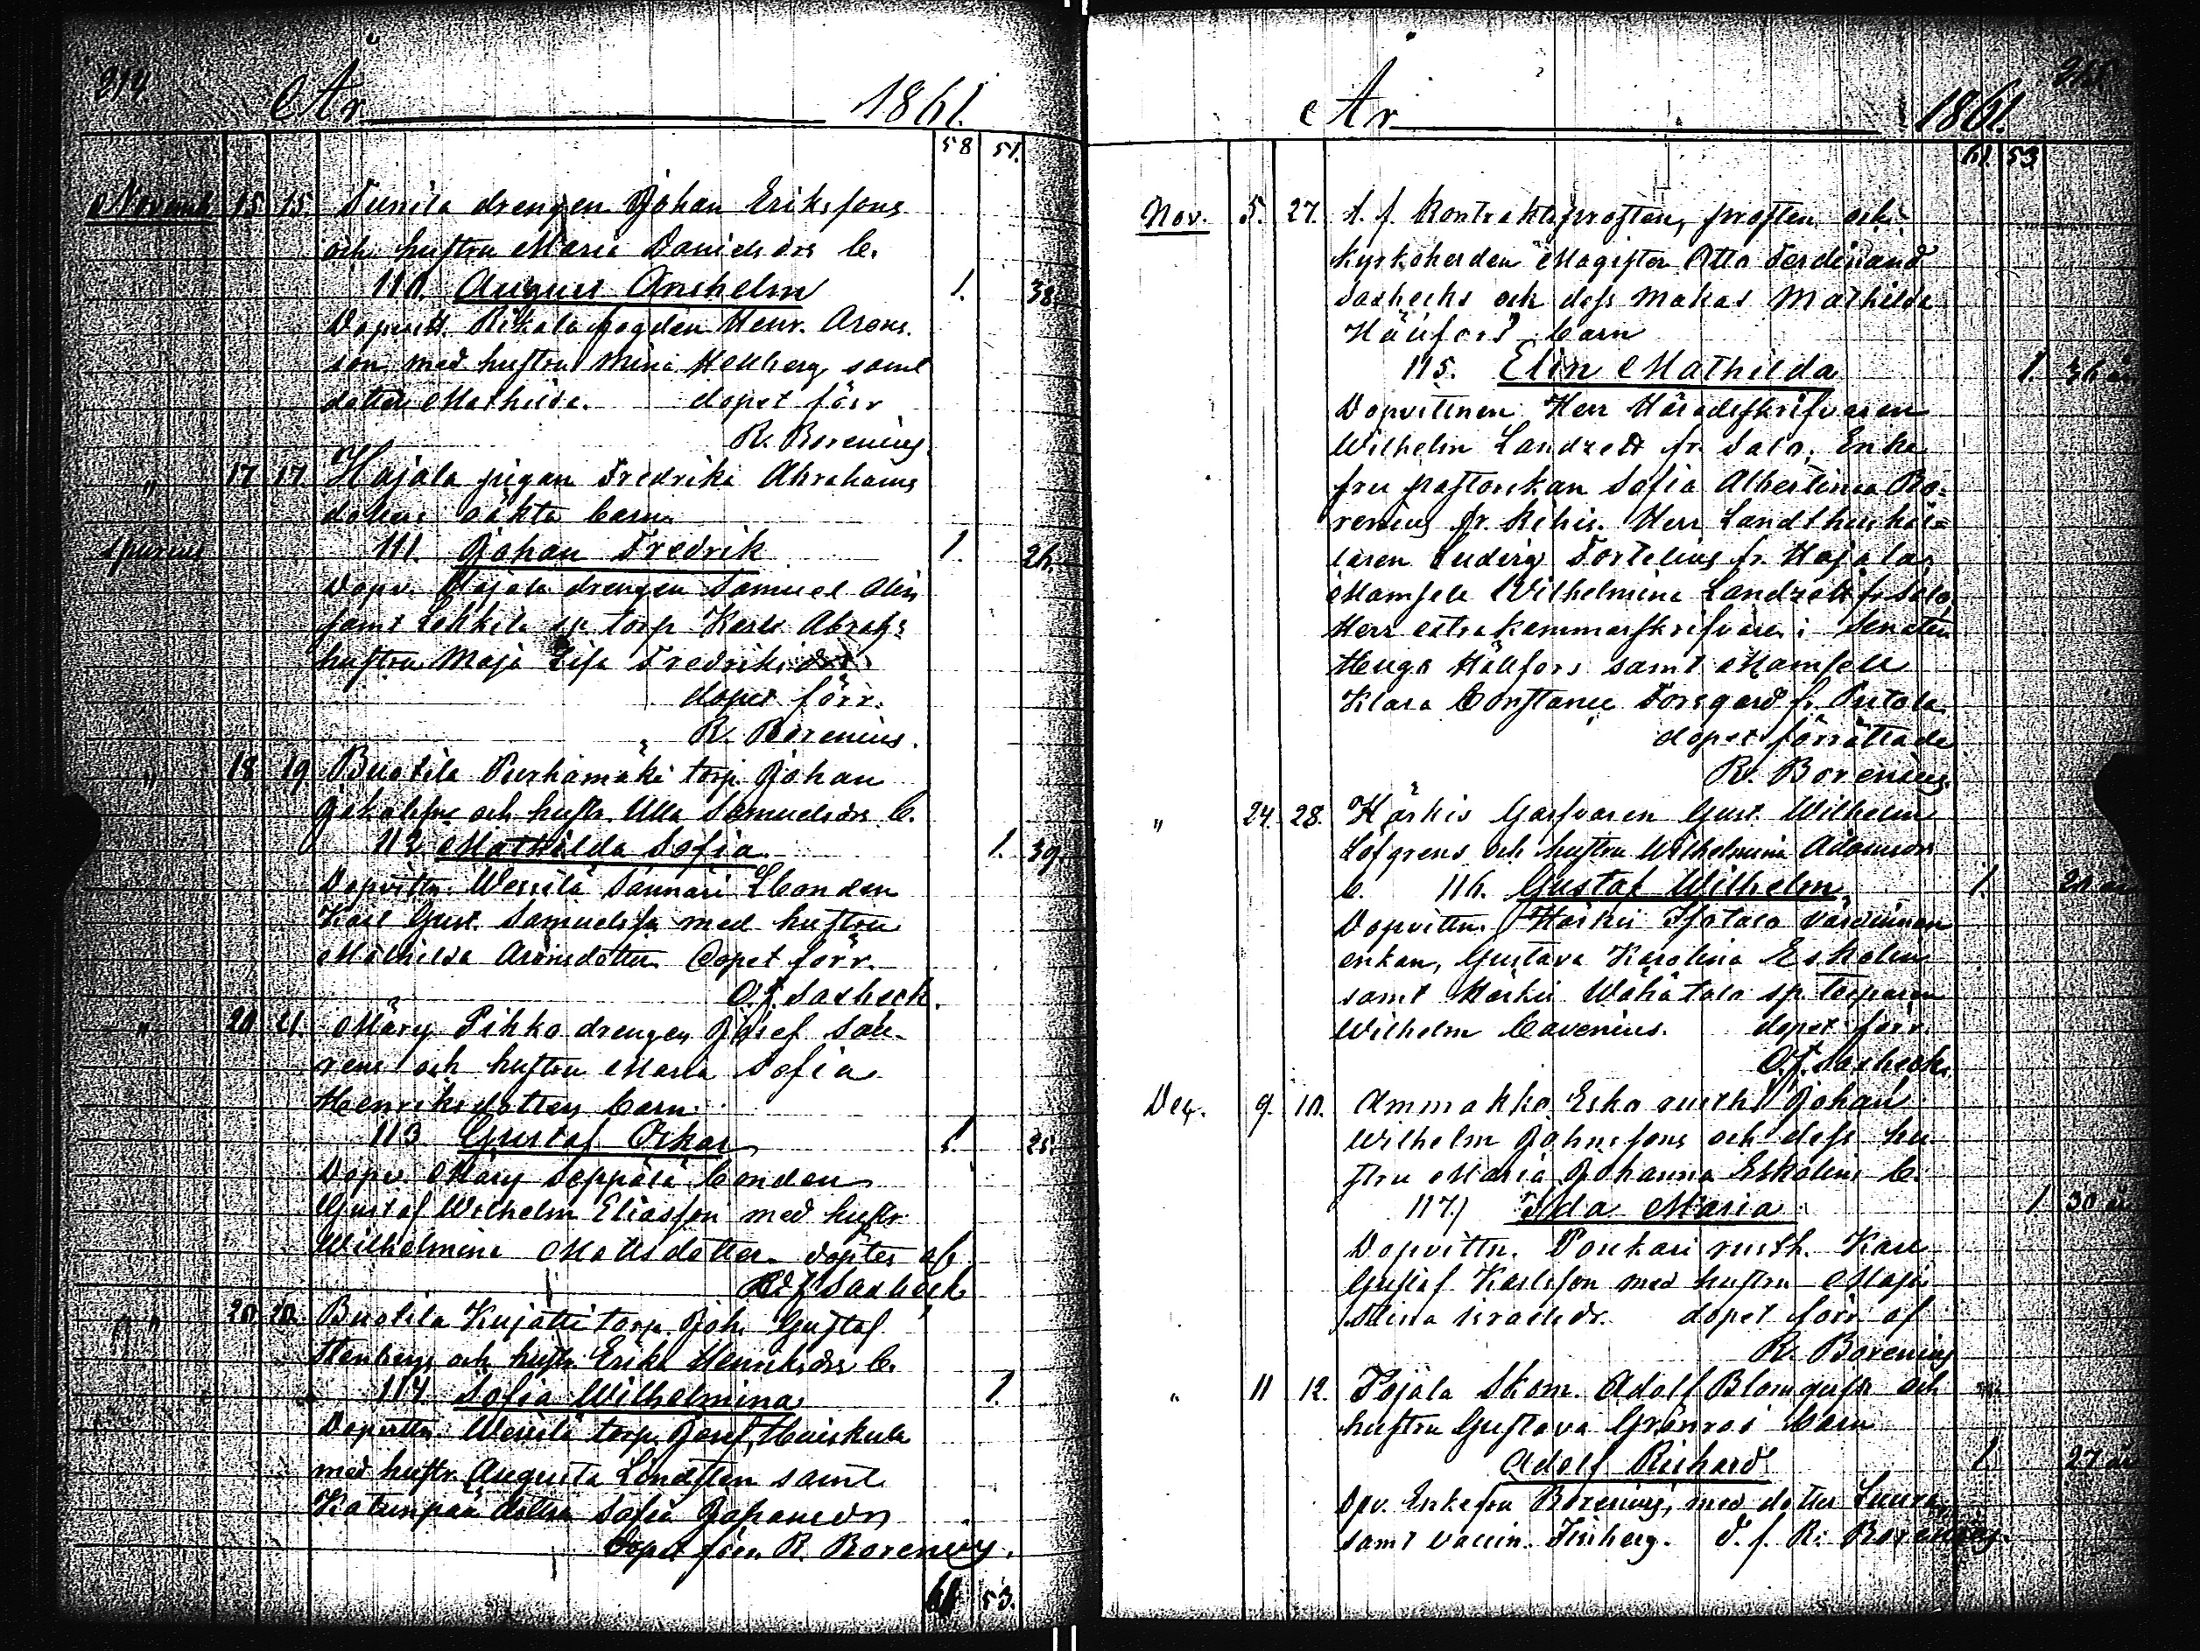 214.
År 1861.
58 51.
Novemb. 15 15. Tunila drengen Johan Eriksfons
och huftru Maria Danielsdrs b.
110. August Anshelm 1. 38.
Dopvitt. Rikala fogden Henr. Arons-
son med huftru Mina Hellberg samt
dotter Mathilda. dopet förr
R. Borenius.
" 17 17 Hajala pigan Fredrika Abrahams
dotters oäkta barn
spurius 111. Johan Fredrik 1. 26.
Dopv. Hajala drengen Samuel Alin
samt Lehkila sp. torp. Karl Abrahs
huftru Maja Lisa Fredriksdr.
dopet förr.
R. Borenius.
" 18 19 Buotila Purhamäki torp. Johan
Jakobssns och huftr. Ulla Samuelsdrs b.
112 Mathilda Sofia. 1. 39.
Dopvittn. Wessilä Sannari bonden
Karl Gust. Samuelssn med huftru
Mathilda Aronsdotter. Dopet förr.
O.f. Saxbeck.
" 20 21. Märy Pihko drengen Josef
och huftru Maria Sofia
Henriksdotters barn.
113 Gustaf Oskar 1. 25.
Dopv. Märy Seppälä bonden
Gustaf Wilhelm Eliasson med huftr.
Wilhelmina Mattsdotter. döptes af
O.f. Saxbeck
" 20 20. Buotila Kujätti torp. Joh. Gustaf
Stenbergs och huftr. Erika Henriksdrs b.
114 Sofia Wilhelmina 1.
Dopvittn. Wessilä torp. Josef
med huftr. Augusta Lindsten samt
dottren Sofia Johansdr
Dopet förr. R. Borenius.
61 53.
215
År 1861.
61. 53
Nov. 5. 27. t. f. Kontraktsprosten, prosten och
kyrkoherden Magister Otto Ferdinand
Saxbecks och dess makas Mathilda
Hällfors barn
115. Elin Mathilda 1. 36 år
Dopvittnen: Herr Häradsskrifvaren
Wilhelm Landzett fr. Salo, Enke
fru pastorskan Sofia Albertina Bo-
renius fr. Kihis. Herr Landthushål-
laren Ludvig Tortelius fr. Hajala,
Mamsell Wilhelmina Landzett fr. Salo,
Herr extrakammarskrifvaren i Senaten
Hugo Hällfors samt Mamsell
Klara Constance fr.
dopet förrättade
R. Borenius.
" 24. 28. Härkis Garfvaren Gust. Wilhelm
Löfgrens och huftru Wilhelmina Adamsdrs
b. 116. Gustaf Wilhelm. 1. år
Dopvittn. Härkis Isotalo värdinnan
enkan, Gustava Karolina Eskolin
samt Härkis Wähätalo sp. torparen
Wilhelm Cavenius. dopet förr.
O.f. Saxbeck.
Dec. 9. 10. Ammakko Esko rusth. Johan
Wilhelm Johnssons och dess hu-
ftru Maria Johanna Eskolins b.
117.) Ida Maria 1 30 år
Dopvittn. Poukari rusth. Karl
Gustaf Karlsson med huftru Maja
Stina Israelsdr. dopet förr. af
R. Borenius
" 11 12. Pojala Skom. Adolf Blomqvists och
huftru Gustava Grönroos barn
Adolf Richard 1. 27 år
Dpv. Enkefru Borenius, med dotter Laura,
samt vaccin. Finberg. D. f. R. Borenius.